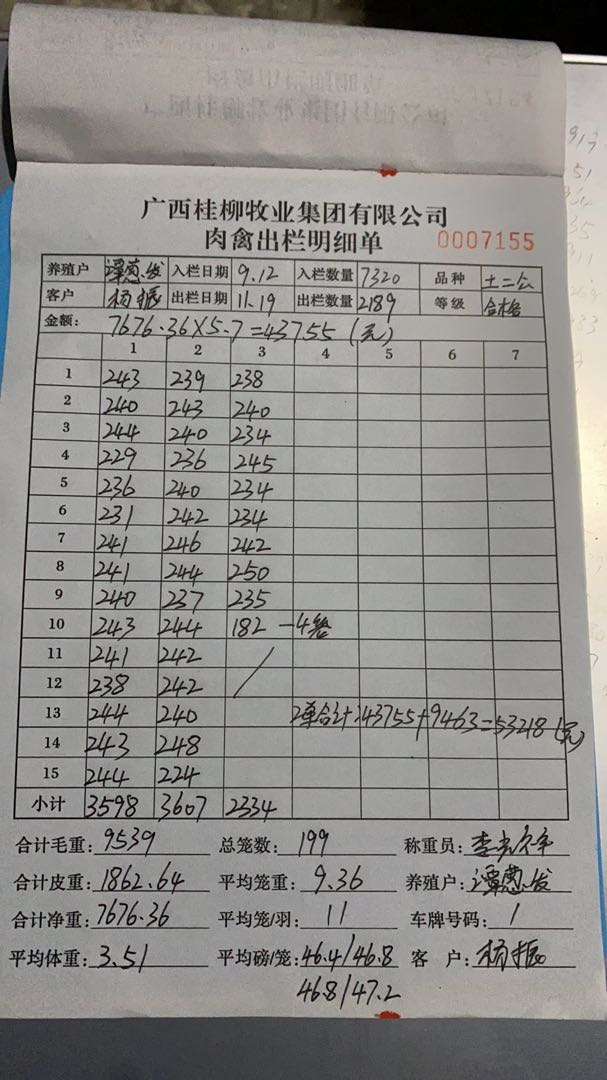 广西桂柳牧业集团有限公司
肉禽出栏明细单 0007155
养殖户 谭葱发 入栏日期 9.12 入栏数量 7320 品种 土二公
客户 杨振 出栏日期 11.19 出栏数量 2189 等级 合格
金额: 7676.36×5.7=43755(元)
1 2 3 4 5 6 7
1 243 239 238
2 240 243 240
3 244 240 234
4 229 236 245
5 236 240 234
6 231 242 234
7 241 246 242
8 241 244 250
9 240 237 235
10 243 244 182 -4笼
11 241 242
12 238 242 /
13 244 240 2单合计:43755+9463=53218(元)
14 243 248
15 244 224
小计 3598 3607 2334
合计毛重: 9539 总笼数: 199 称重员: 李
合计皮重: 1862.64 平均笼重: 9.36 养殖户: 谭葱发
合计净重: 7676.36 平均笼/羽: 11 车牌号码: 1
平均体重: 3.51 平均磅/笼: 46.4/46.8 客 户: 杨振
46.8/47.2